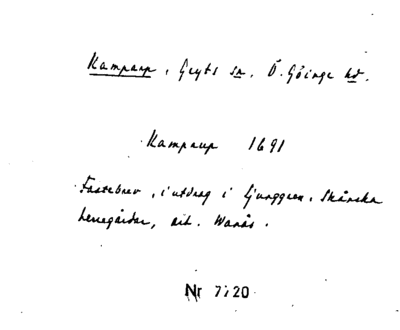 Kamparp, Gryts sn. Ö. Göinge hd.
Kamparp 1691
Fastebrev, i utdrag i Ljunggren. Skånska
herregårdar, art. Wanås.
Nr 7120